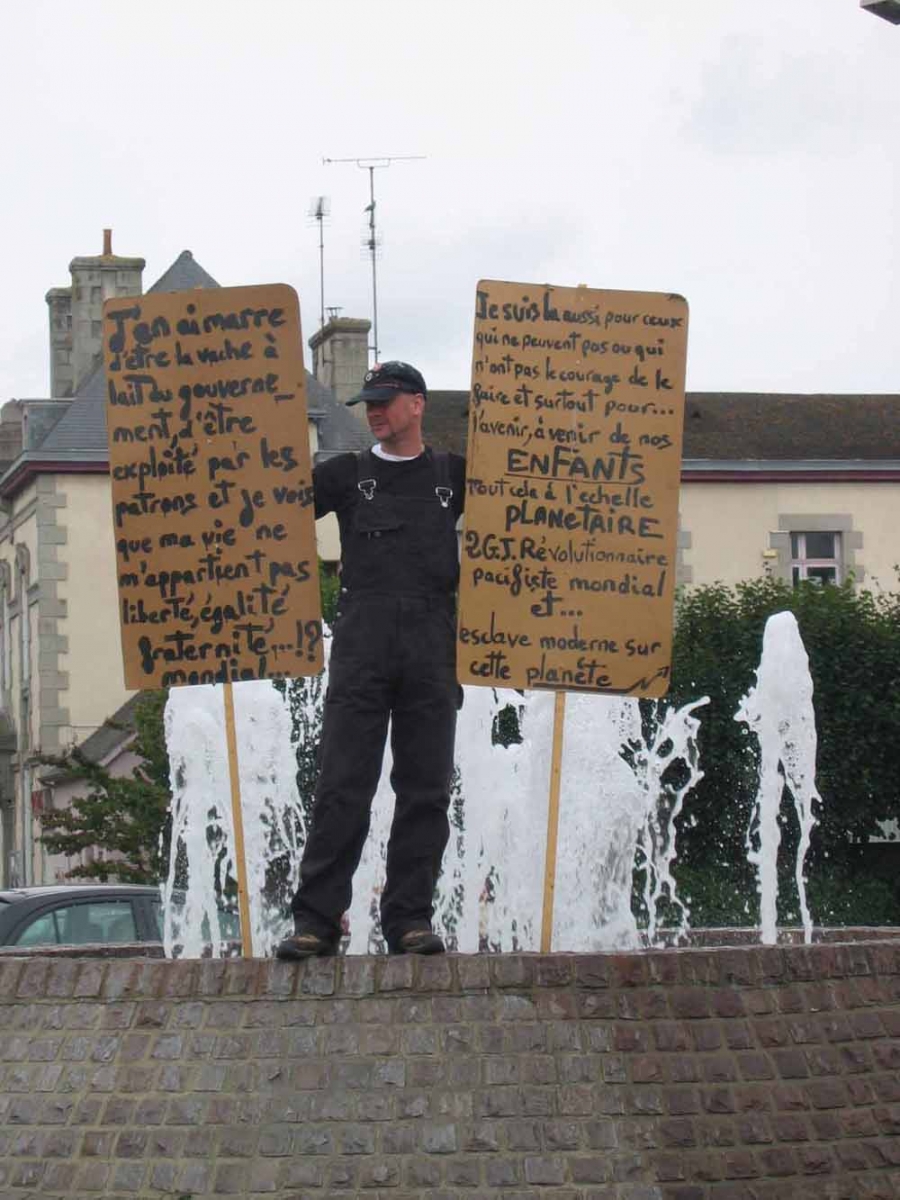 J'en ai marre
d'être la vache à
lait du gouverne_
ment, d'être
exploité par les
patrons et je vois
que ma vie ne
m'appartient pas
liberté, égalité
fraternité...!?
mondial...
Je suis la aussi pour ceux
qui ne peuvent pas ou qui
n'ont pas le courage de le
faire et surtout pour...
l'avenir, à venir de nos
ENFANTS
tout cela à l'echelle
PLANETAIRE
2.G.J. Révolutionnaire
pacifiste mondial
et...
esclave moderne sur
cette planète